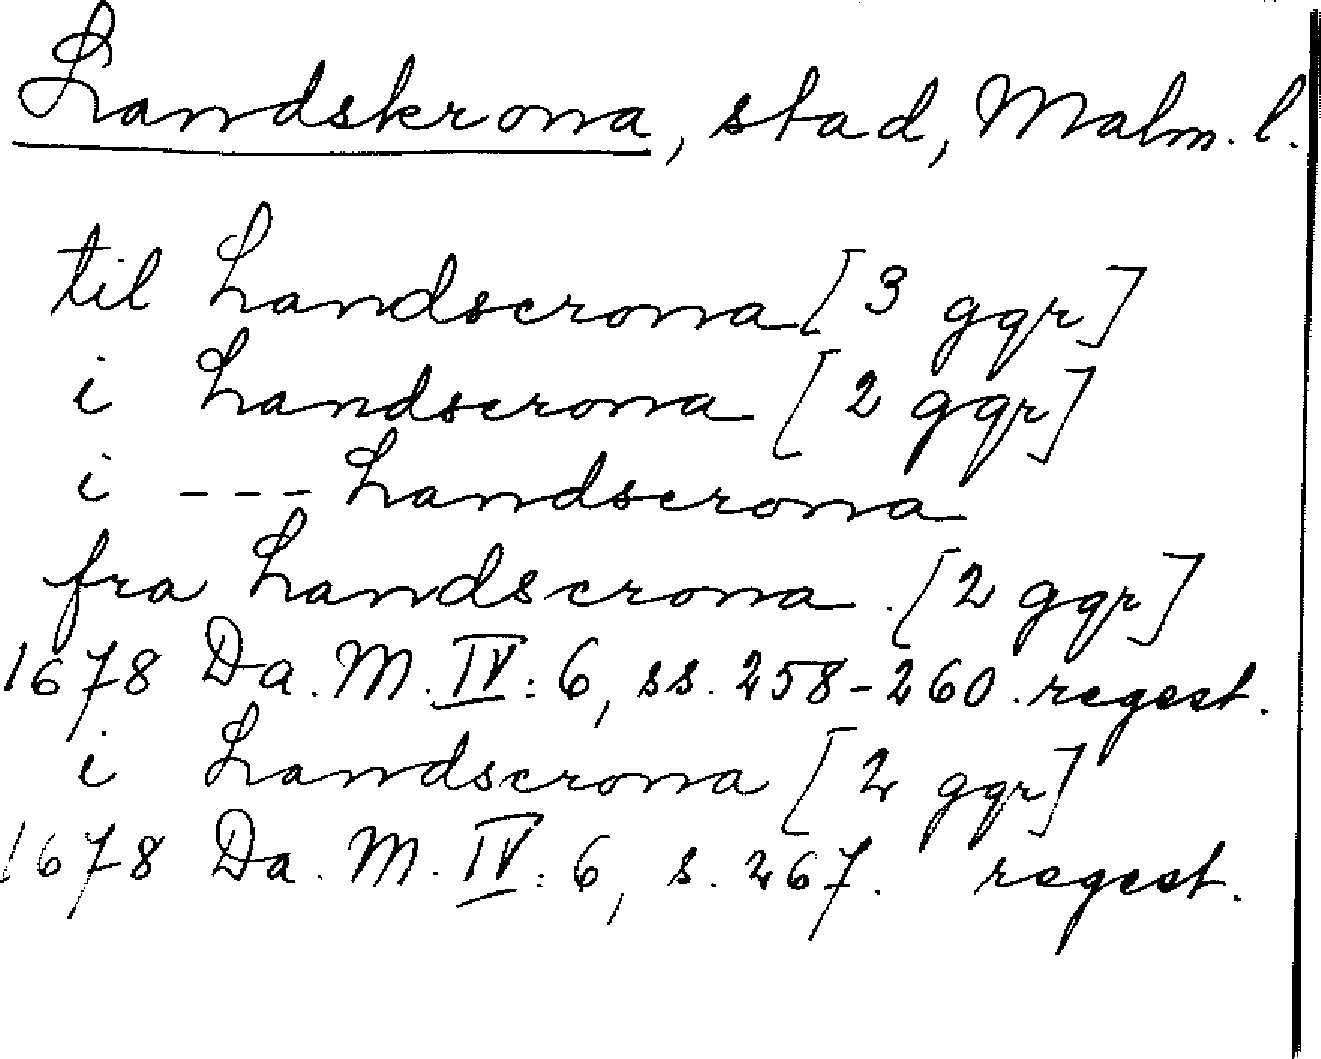 Landskrona, stad, Malm. l.
til Landscrona [3 ggr]
i Landscrona [2 ggr]
i --- Landscrona
fra Landscrona. [2 ggr]
1678 Da. M. IV: 6, ss. 258-260. regest.
i Landscrona [2 ggr]
1678 Da. M. IV: 6, s. 267. regest.